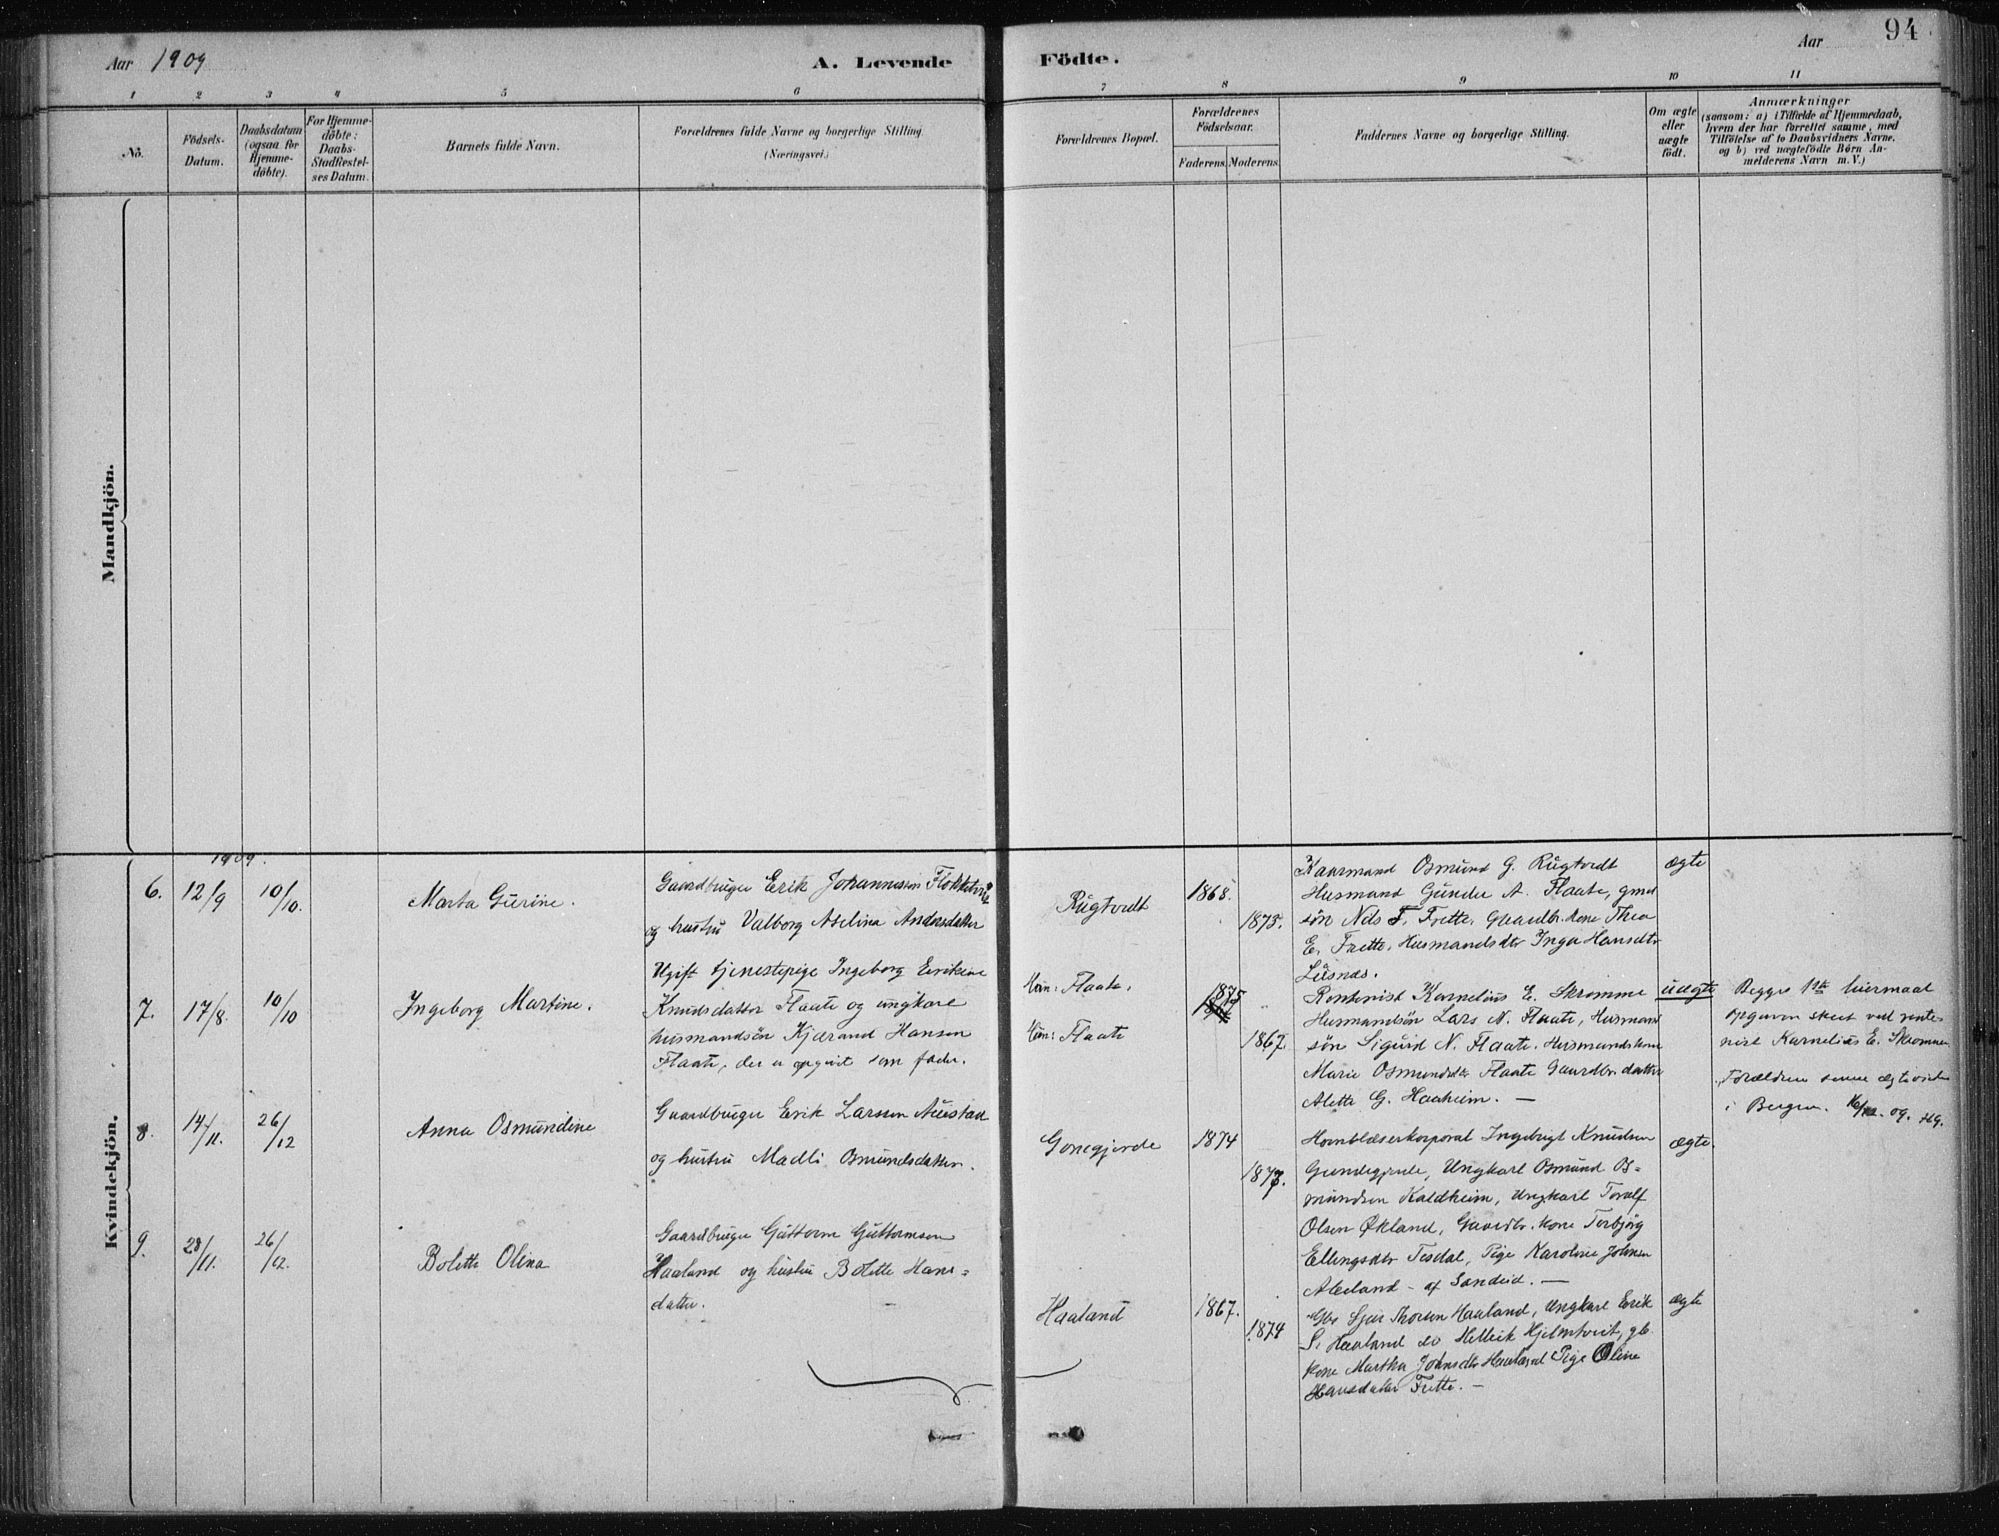 Aar 1909
A. Levende Födte.
Aar
94
1 2 3 4 5 6 7 8 9 10 11
Nö.
Födsels-Datum.
Daabsdatum (ogsaa for Hjemmedöbte).
For Hjemmedöbte: Daabs-Stadfæstelses Datum.
Barnets fulde Navn.
Forældrenes fulde Navne og borgerlige Stilling.
(Næringsvei.)
Forældrenes Bopæl.
Forældrenes Födselsaar.
Faderens. Moderens.
Faddernes Navne og borgerlige Stilling.
Om ægte eller uægte födt.
Anmærkninger
(saasom: a) i Tilfælde af Hjemmedaab, hvem der har forrettet samme, med Tilföielse af to Daabsvidners Navne. og b) ved uægtefödte Börn Anmelderens Navn m. V.)
Mandkjön.
Kvindekjön.
1909.
6. 12/9 10/10. Marta Gurine.
Gaardbruger Erik Johannessen
og hustru Valborg Aselina Andersdatter
Rugtvedt 1868. 1875.
Kaarmand Osmund G. Rugtvedt
Husmand Gunder A. Flaate, gmd
sön Nils T. Frette, Gaardbr. kone Thea
E. Frette, Husmandsdtr Inga Hansdtr
Lusnæs.
ægte
7. 17/8. 10/10 Ingeborg Martine.
Ugift tjenestepige Ingeborg Erikine
Knudsdatter Flaate og ungkare
husmandsön Kjærand Hansen
Flaate, der er opgivit som fader.
Flaate.
Flaate
1875
1867.
Kornelius E. Skromme
Husmandsön Lars N. Flaate, Husmand
sön Sigurd N. Flaate. Husmandskone
Marie Osmundsdtr Flaate Gaardbr. datter
Alette G. Haaheim. —
uægte
Begges 1ste leiermaal
opgaven skeet ved
Kornelius E. Skromme.
Forældrene senere ægteviede
i Bergen. 16/12. 09.
8. 14/11. 26/12 Anna Osmundine
Gaardbruger Erik Larsen Austad
og hustru Madli Osmundsdatter.
Gonegjerde 1874 1873.
Hornblæserkorporal Ingebrigt Knudsen
Gundegjerde, Ungkarl Osmund Os=
mundsen Kaldheim, Ungkarl Toralf
Olsen Økland, Gaardbr. kone Torbjörg
Ellingsdtr Tesdal, Pige Karoline Johnsen
- af Sandeid. —
ægte.
9. 28/11. 26/12. Bolette Olina
Gaardbruger Guttorm Guttormsen
Haaland og hustru Bolette Hans=
datter.
Haaland 1867. 1874
Thorsen Haaland, Ungkarl Erik
S. Haaland do Hellik Hjelmtveit, gb.
kone Martha Johnsdtr Haaland Pige Oline
Hansdatter Frette. —
ægte